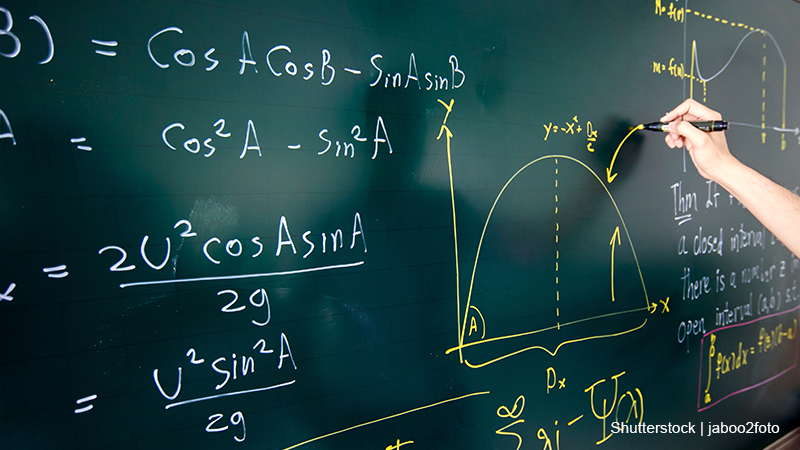 B) = Cos A CosB - SinAsinB
A = Cos²A - sin²A
= 2U²cosAsinA
2g
= U²sin²A
2g
Y
y=-x²+
A
X
Dx
∞
Σ
Ψ(x)
Thm If
a closed interval
there is a number z
open interval (a,b) s.t.
∫ f(x)dx = f(z)(b-a)
a
Shutterstock | jaboo2foto